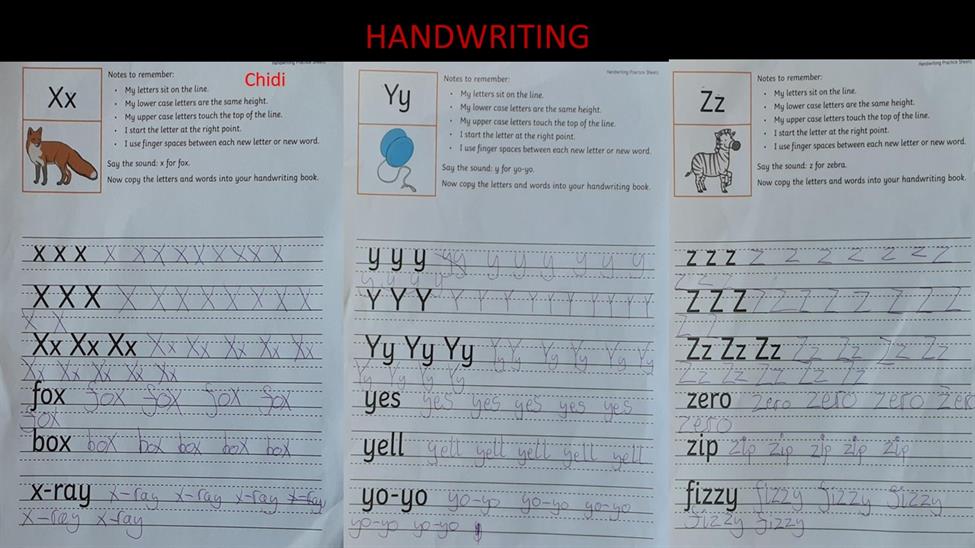 HANDWRITING
Handwriting Practice Sheets
Chidi
Xx
Notes to remember:
• My letters sit on the line.
• My lower case letters are the same height.
• My upper case letters touch the top of the line.
• I start the letter at the right point.
• I use finger spaces between each new letter or new word.
Say the sound: x for fox.
Now copy the letters and words into your handwriting book.
x x x x x x x x x x x x
X X X X X X X X X X X X
X X
Xx Xx Xx Xx Xx Xx Xx Xx
Xx Xx Xx Xx Xx
fox fox fox fox fox
fox
box box box box box box
x-ray x-ray x-ray x-ray x-ray
x-ray x-ray
Handwriting Practice Sheets
Yy
Notes to remember:
• My letters sit on the line.
• My lower case letters are the same height.
• My upper case letters touch the top of the line.
• I start the letter at the right point.
• I use finger spaces between each new letter or new word.
Say the sound: y for yo-yo.
Now copy the letters and words into your handwriting book.
y y y y y y y y y y y
y y y y
Y Y Y Y Y Y Y Y Y Y Y Y Y
Yy Yy Yy Yy Yy Yy Yy Yy Yy
Yy Yy Yy Yy
yes yes yes yes yes yes
yell yell yell yell yell yell
yo-yo yo-yo yo-yo yo-yo
yo-yo yo-yo
Handwriting Practice Sheets
Zz
Notes to remember:
• My letters sit on the line.
• My lower case letters are the same height.
• My upper case letters touch the top of the line.
• I start the letter at the right point.
• I use finger spaces between each new letter or new word.
Say the sound: z for zebra.
Now copy the letters and words into your handwriting book.
z z z z z z z z z z
z z z
Z Z Z Z Z Z Z Z Z Z Z
Z Z
Zz Zz Zz Zz Zz Zz Zz
Zz Zz Zz Zz Zz
zero zero zero zero zer
zero
zip zip zip zip zip zip
fizzy fizzy fizzy fizzy
fizzy fizzy